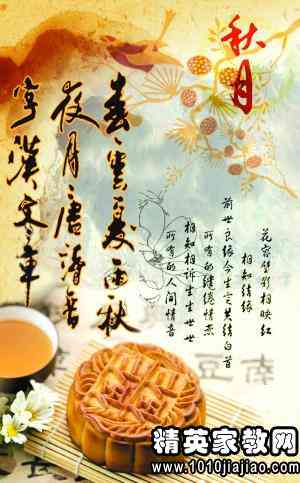 秋月
春雲夏雨秋
夜月唐詩晉
字漢文章
相映红
相知结缘
前世良缘今生定共结白首
所有的缱绻情
相知相诉生生世世
所有的人间情音
南
豆
精英家教网
www.1010jiajiao.com